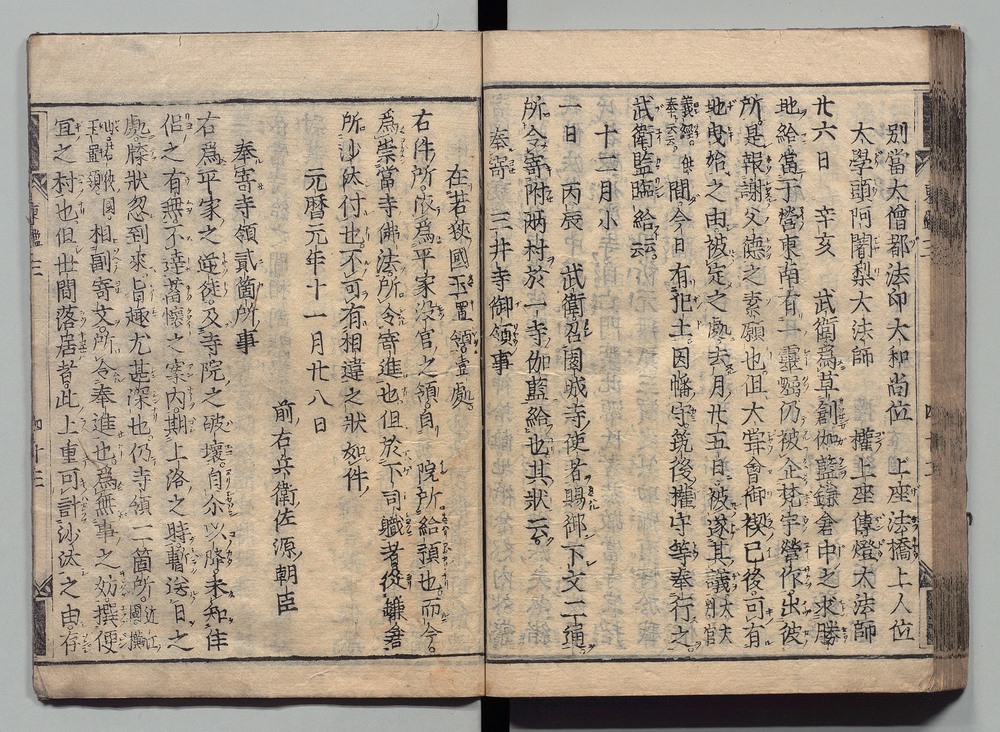 別當大僧都法印大和尚位　上座法橋上人位
大學頭阿闍梨大法師　權上座傳燈大法師
廿六日　辛亥　武衛爲草創伽藍鎌倉中之求勝
地給當于營東南有一靈崛仍被企梵宇營作於彼
所是報謝父德之素願也但大甞會御禊已後可有
地曳始之由被定之處去月廿五日被遂其議大夫判官
義經供奉云云間今日有犯土因幡守筑後權守等奉行之
武衛監臨給云云
十二月小
一日　丙辰　武衛召園城寺使者賜御下文二通
所令寄附兩村於一寺伽藍給也其狀云
奉寄　三井寺御領事
在若狹國玉置領壹處
右件所依爲平家沒官之領自　院所給預也而今
爲崇當寺佛法所令寄進也但於下司職者從鎌倉
所沙汰付也不可有相違之狀如件
元曆元年十一月廿八日
前右兵衛佐源朝臣
奉寄寺領貳箇所事
右爲平家之逆徒及寺院之破壞自尒以降未知住
侶之有無不達蓄懷之案內期上洛之時暫送日之
處牒狀忽到來旨趣尤甚深也仍寺領二箇所近江國橫
山若狹國玉置領相副寄文所令奉進也爲無事之妨撰便
宜之村也但世間落居者此上重可計沙汰之由存